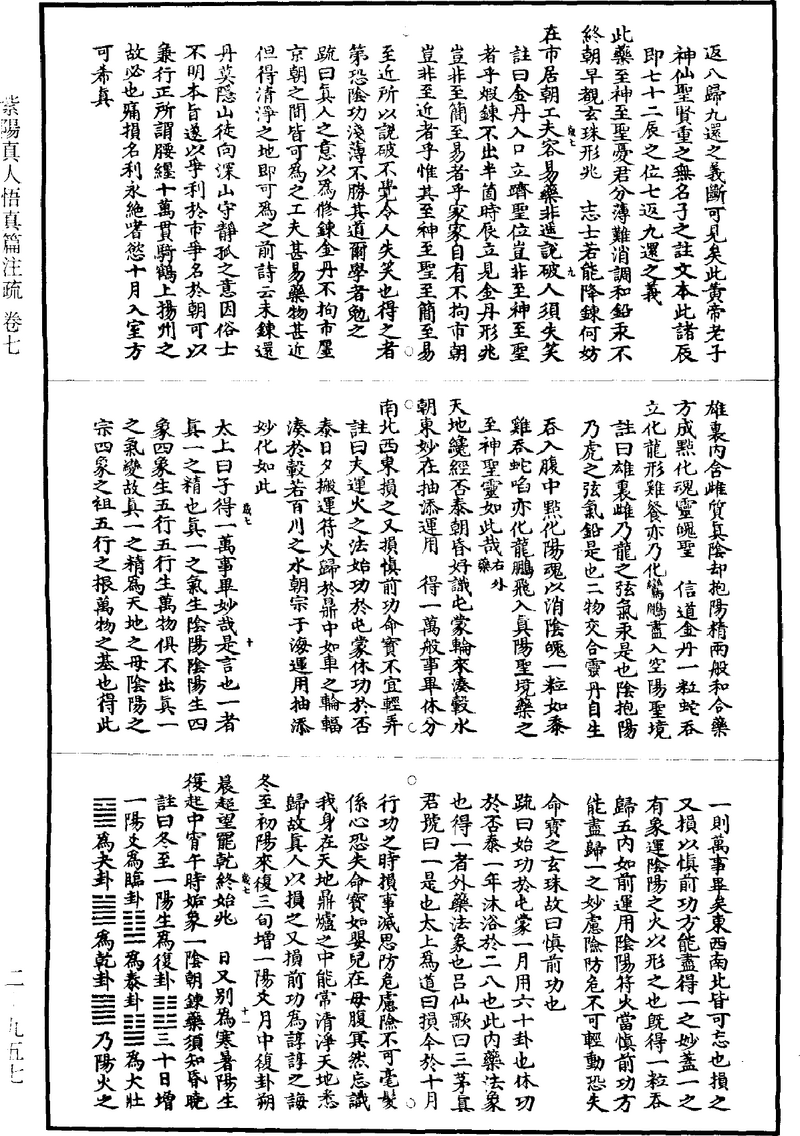 紫陽真人悟真篇注疏　卷七
返八歸九還之義斷可見矣此黄帝老子
神仙聖賢重之無名子之註文本此諸辰
即七十二辰之位七返九還之義
此藥至神至聖憂君分薄難消調和鉛汞不
終朝早覩玄珠形兆　志士若能降鍊何妨
在市居朝工夫容易藥非遥説破人須失笑
註曰金丹入口立躋聖位豈非至神至聖
者乎煆鍊不出半箇時辰立見金丹形兆
豈非至簡至易者乎家家自有不拘市朝
豈非至近者乎惟其至神至聖至簡至易
至近所以説破不覺令人失笑也得之者
第恐陰功淺薄不勝其道爾學者勉之
疏曰真人之意以為修鍊金丹不拘市鄽
京朝之間皆可為之工夫甚易藥物甚近
但得清淨之地即可為之前詩云未鍊還
丹莫隱山徒向深山守靜孤之意因俗士
不明本旨遂以爭利於市爭名於朝可以
兼行正所謂腰纏十萬貫騎鶴上揚州之
故必也痛損名利永絶嗜慾十月入室方
可希真
雄裏内含雌質真陰却抱陽精兩般和合藥
方成點化魂靈魄聖　信道金丹一粒蛇吞
立化龍形雞餐亦乃化鸞鵬盡入空陽聖境
註曰雄裏雌乃龍之弦氣汞是也陰抱陽
乃虎之弦氣鉛是也二物交合靈丹自生
吞入腹中點化陽魂以消陰魄一粒如黍
雞吞蛇啗亦化龍鵬飛入真陽聖境藥之
至神聖靈如此哉右外藥
天地纔經否泰朝昏好識屯蒙輪來湊轂水
朝東妙在抽添運用　得一萬般事畢休分
南北西東損之又損慎前功命寳不宜輕弄
註曰夫運火之法始功於屯蒙休功於否
泰日夕搬運符火歸於鼎中如車之輪輻
湊於轂若百川之水朝宗于海運用抽添
妙化如此
太上曰子得一萬事畢妙哉是言也一者
真一之精也真一之氣生陰陽陰陽生四
象四象生五行五行生萬物俱不出真一
之氣變故真一之精為天地之母陰陽之
宗四象之祖五行之根萬物之基也得此
一則萬事畢矣東西南北皆可忘也損之
又損以慎前功方能盡得一之妙蓋一之
有象運陰陽之火以形之也既得一粒吞
歸五内如前運用陰陽符火當慎前功方
能盡歸一之妙慮險防危不可輕動恐失
命寳之玄珠故曰慎前功也
疏曰始功於屯蒙一月用六十卦也休功
於否泰一年沐浴於二八也此内藥法象
也得一者外藥法象也吕仙歌曰三茅真
君號曰一是也太上為道曰損今於十月
行功之時損事滅思防危慮險不可毫髮
係心恐失命寳如嬰兒在母腹冥然忘識
我身在天地鼎爐之中能常清淨天地悉
歸故真人以損之又損前功為諄諄之誨
冬至初陽來復三旬增一陽爻月中復卦朔
晨超望罷乾終始兆　日又别為寒暑陽生
復起中宵午時姤象一陰朝鍊藥須知昏曉
註曰冬至一陽生為復卦䷗三十日增
一陽爻為臨卦䷒為泰卦䷊為大壯
䷡為夬卦䷪為乾卦䷀乃陽火之